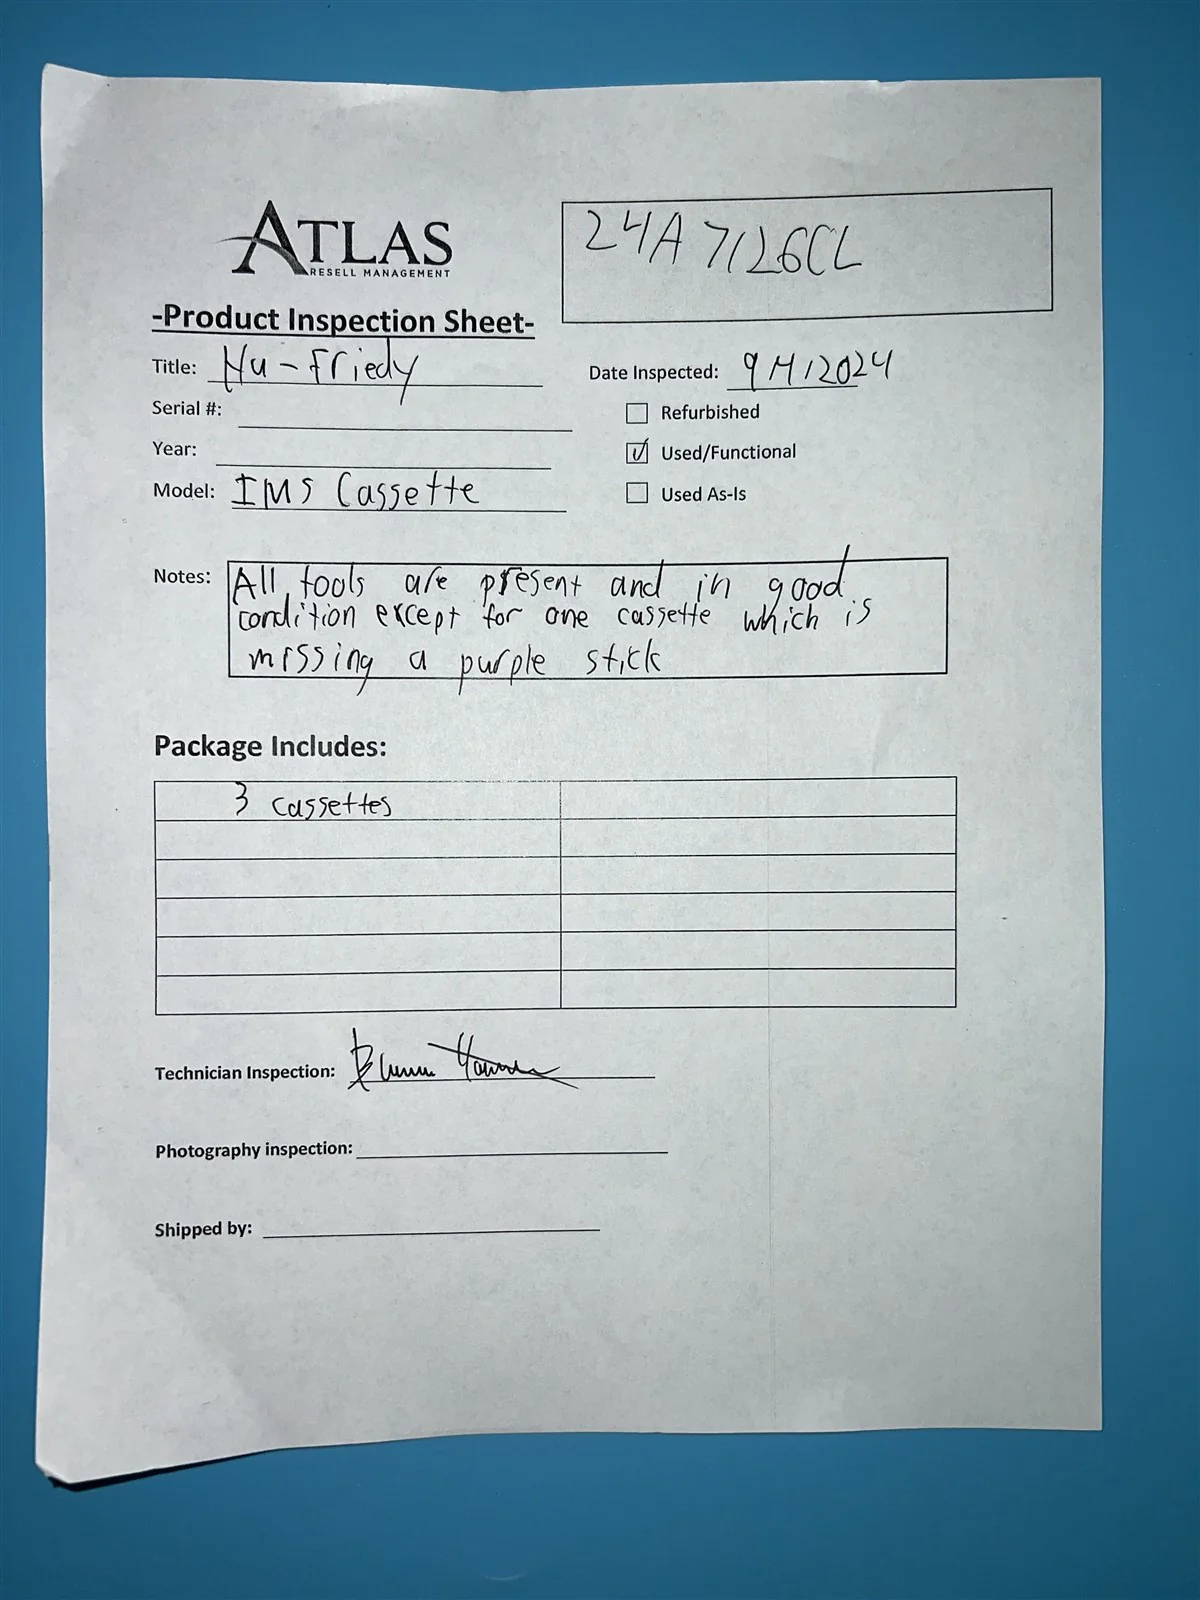 ATLAS
RESELL MANAGEMENT
24A7126CL
-Product Inspection Sheet-
Title: Hu-Friedy
Date Inspected: 9/4/2024
Serial #:
Refurbished
Year:
☑ Used/Functional
Model: IMS Cassette
Used As-Is
Notes: All tools are present and in good
condition except for one cassette which is
missing a purple stick
Package Includes:
3 cassettes
Technician Inspection:
Photography inspection:
Shipped by: